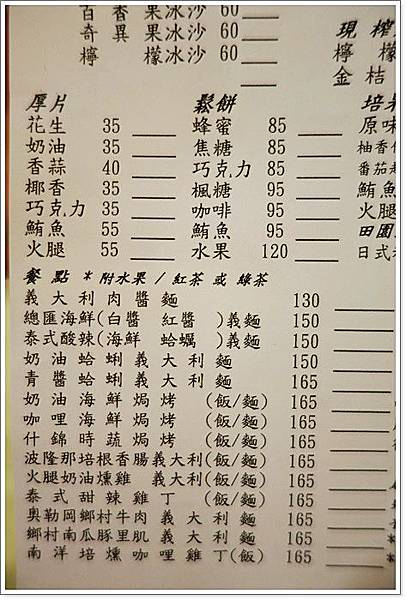 百香果冰沙 60
奇異果冰沙 60
檸檬冰沙 60
現榨
檸檬
金桔
厚片
花生 35
奶油 35
香蒜 40
椰香 35
巧克力 35
鮪魚 55
火腿 55
鬆餅
蜂蜜 85
焦糖 85
巧克力 85
楓糖 95
咖啡 95
鮪魚 95
水果 120
培果
原味
柚香
番茄
鮪魚
火腿
田園
日式
餐點 *附水果 / 紅茶 或 綠茶
義大利肉醬麵 130
總匯海鮮(白醬 紅醬 )義麵 150
泰式酸辣(海鮮 蛤蠣 )義麵 150
奶油蛤蜊義大利麵 150
青醬蛤蜊義大利麵 165
奶油海鮮焗烤 (飯/麵) 165
咖哩海鮮焗烤 (飯/麵) 165
什錦時蔬焗烤 (飯/麵) 165
波隆那培根香腸義大利(飯/麵) 165
火腿奶油燻雞 義大利(飯/麵) 165
泰式甜辣雞丁 (飯/麵) 165
奧勒岡鄉村牛肉 義大利麵 165
鄉村南瓜豚里肌 義大利麵 165
南洋培燻咖哩雞丁(飯/麵) 165